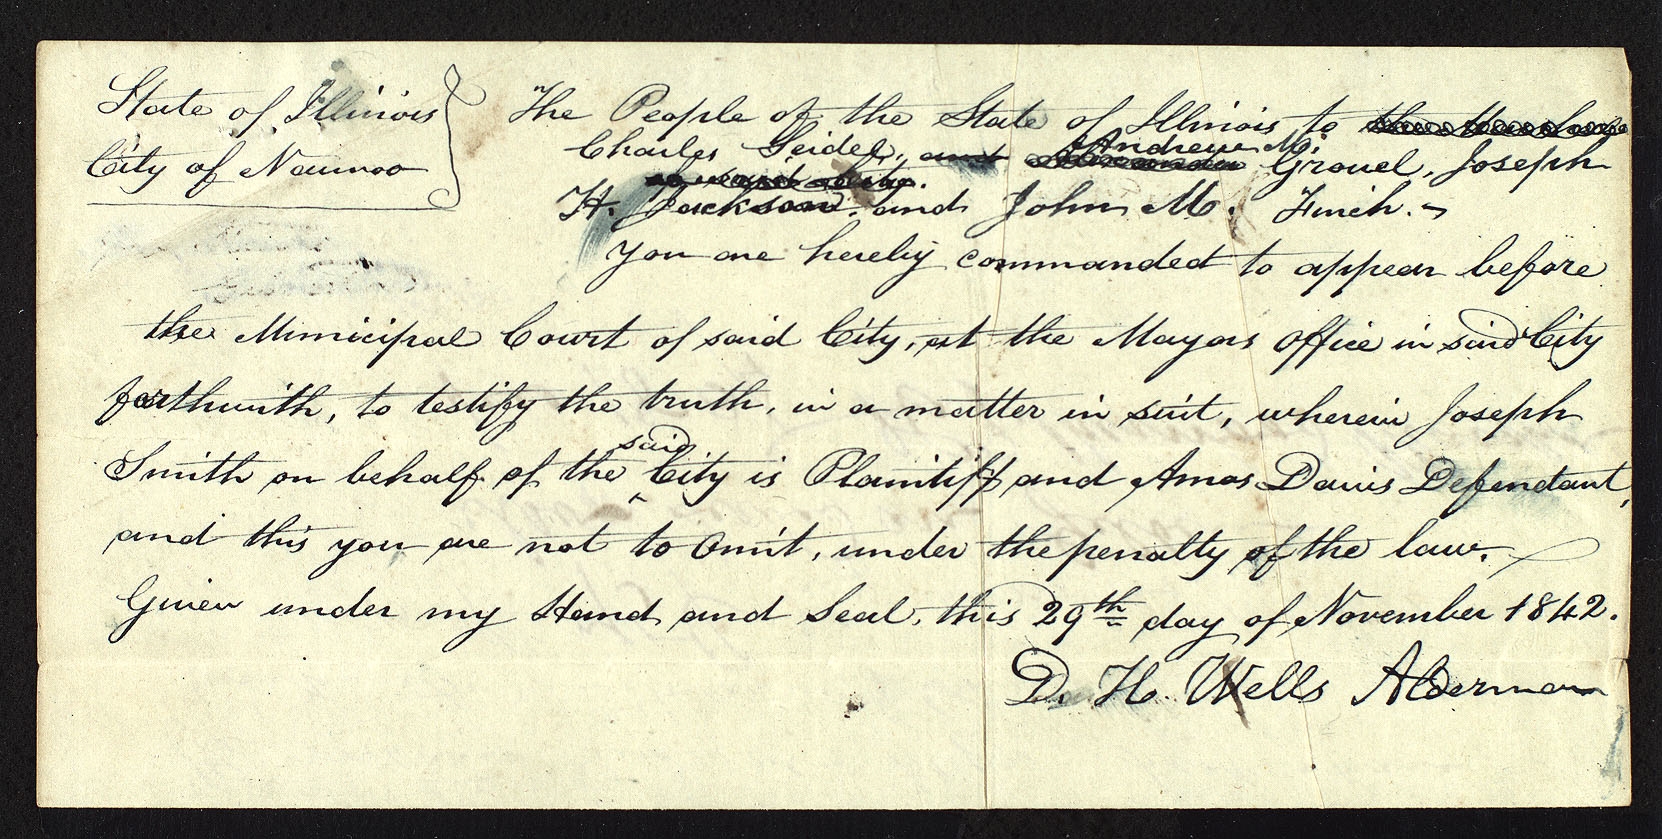 State of Illinois
City of Nauvoo
The People of the State of Illinois to
Charles Geidel, and Andrew M. Grouel, Joseph
H. Jackson. and John M. Finch.
You are hereby commanded to appear before
the Municipal Court of said City, at the Mayors office in said City
forthwith, to testify the truth, in a matter in suit, wherein Joseph
said
Smith on behalf of the ‸ City is Plaintiff and Amos Davis Defendant,
and this you are not to omit, under the penalty of the law.
Given under my Hand and Seal, this 29th day of November 1842.
D. H. Wells Alderman